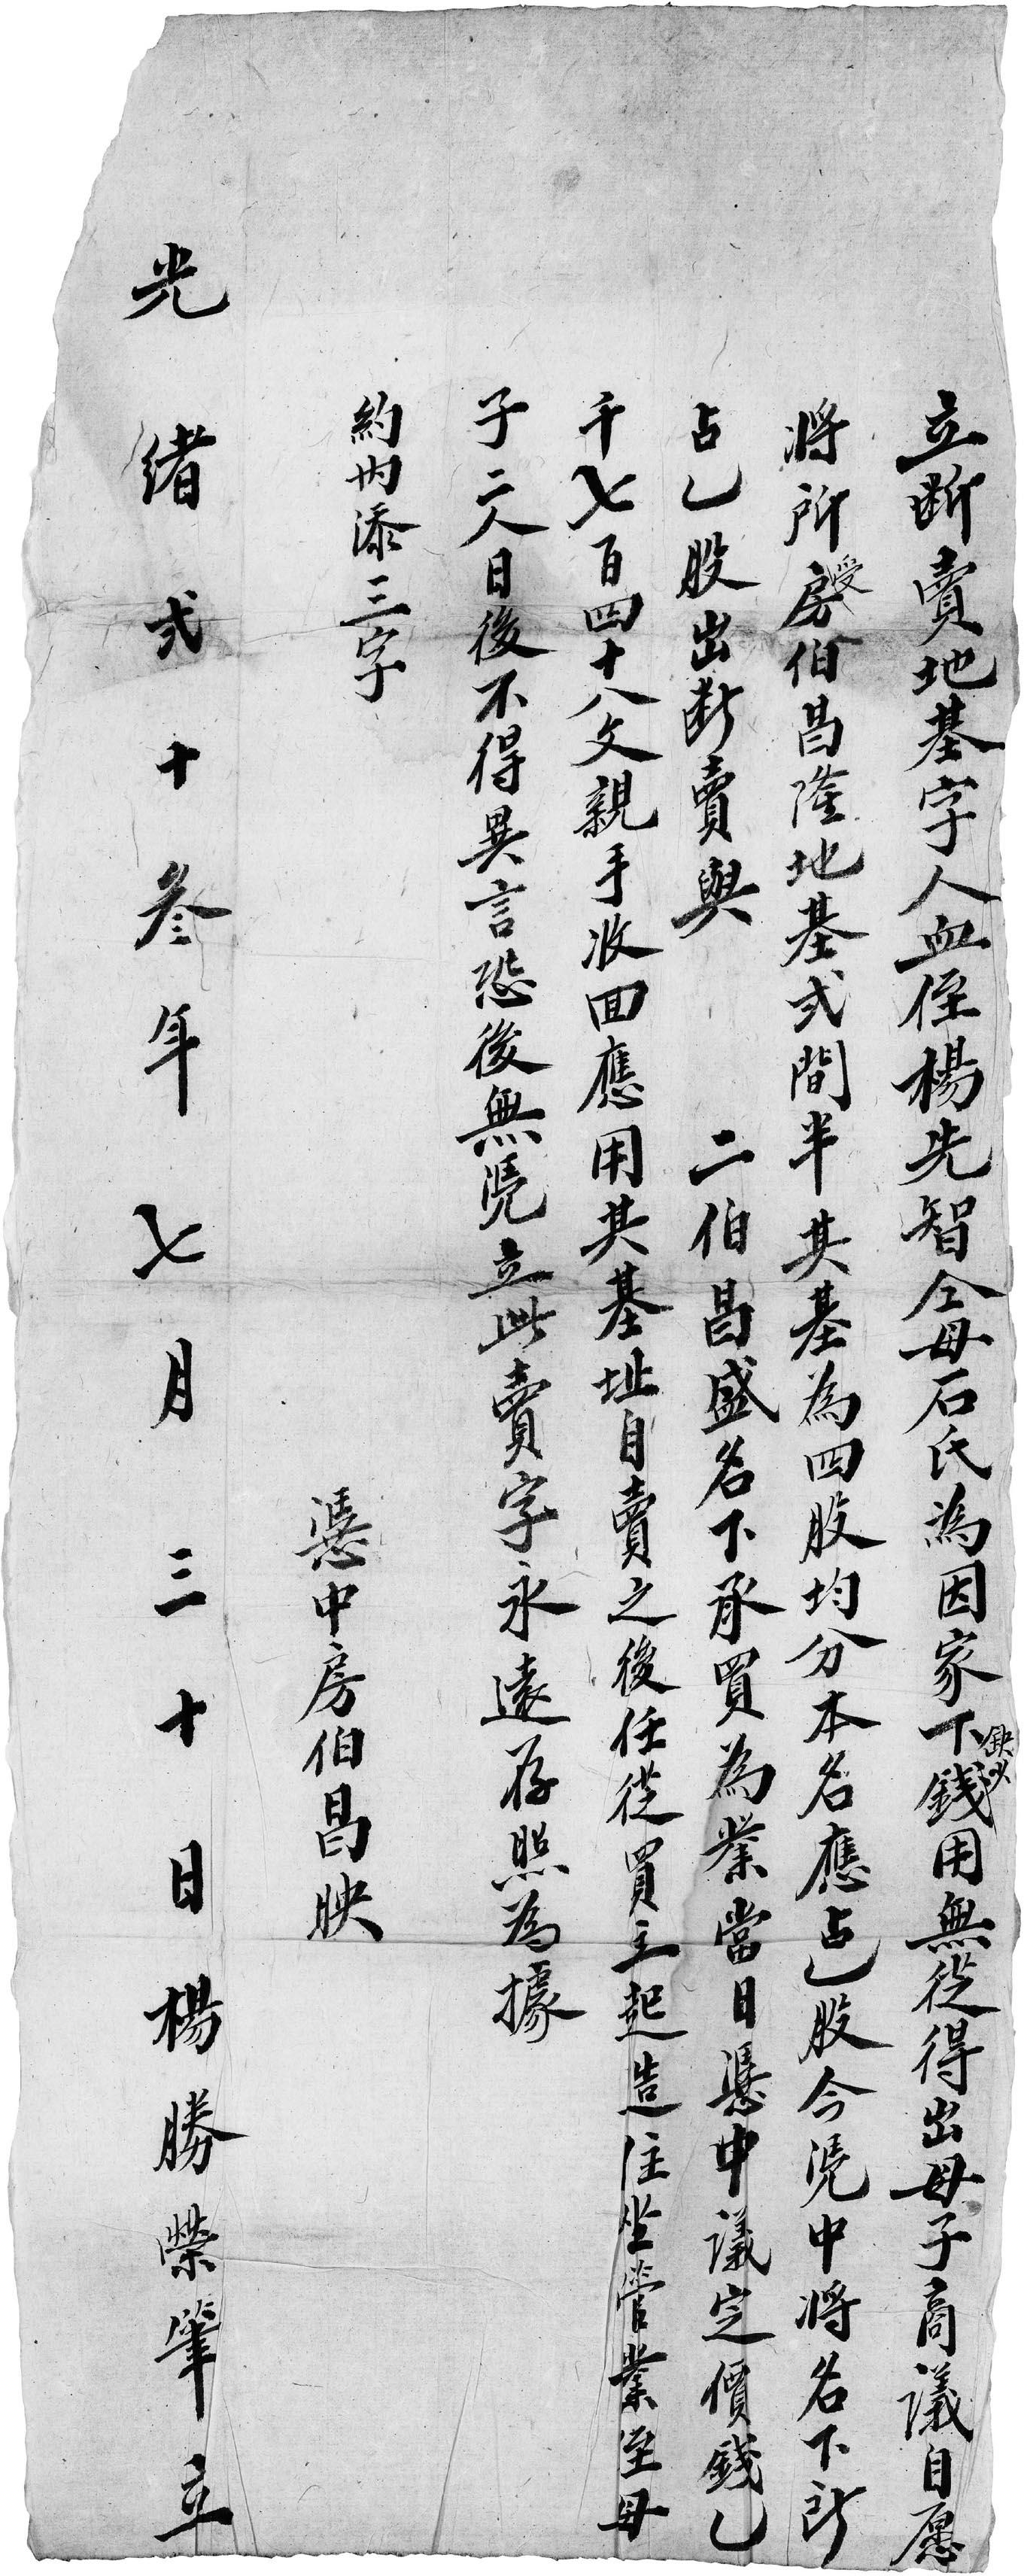 立斷賣地基字人血侄楊先智仝母石氏為因家下缺少錢用無從得出母子商議自愿
將所受房伯昌隆地基弍間半其基為四股均分本名應占乚股今凴中將名下所
占乚股出断賣與 二伯昌盛名下承買為業當日憑中議定價錢乚
千七百四十八文親手收回應用其基址自賣之後任從買主起造住坐管業至母
子二人日後不得異言恐後無凴立此賣字永遠存照為據
約内添三字
憑中房伯昌映
光緒弍十叁年七月三十日楊勝榮筆立